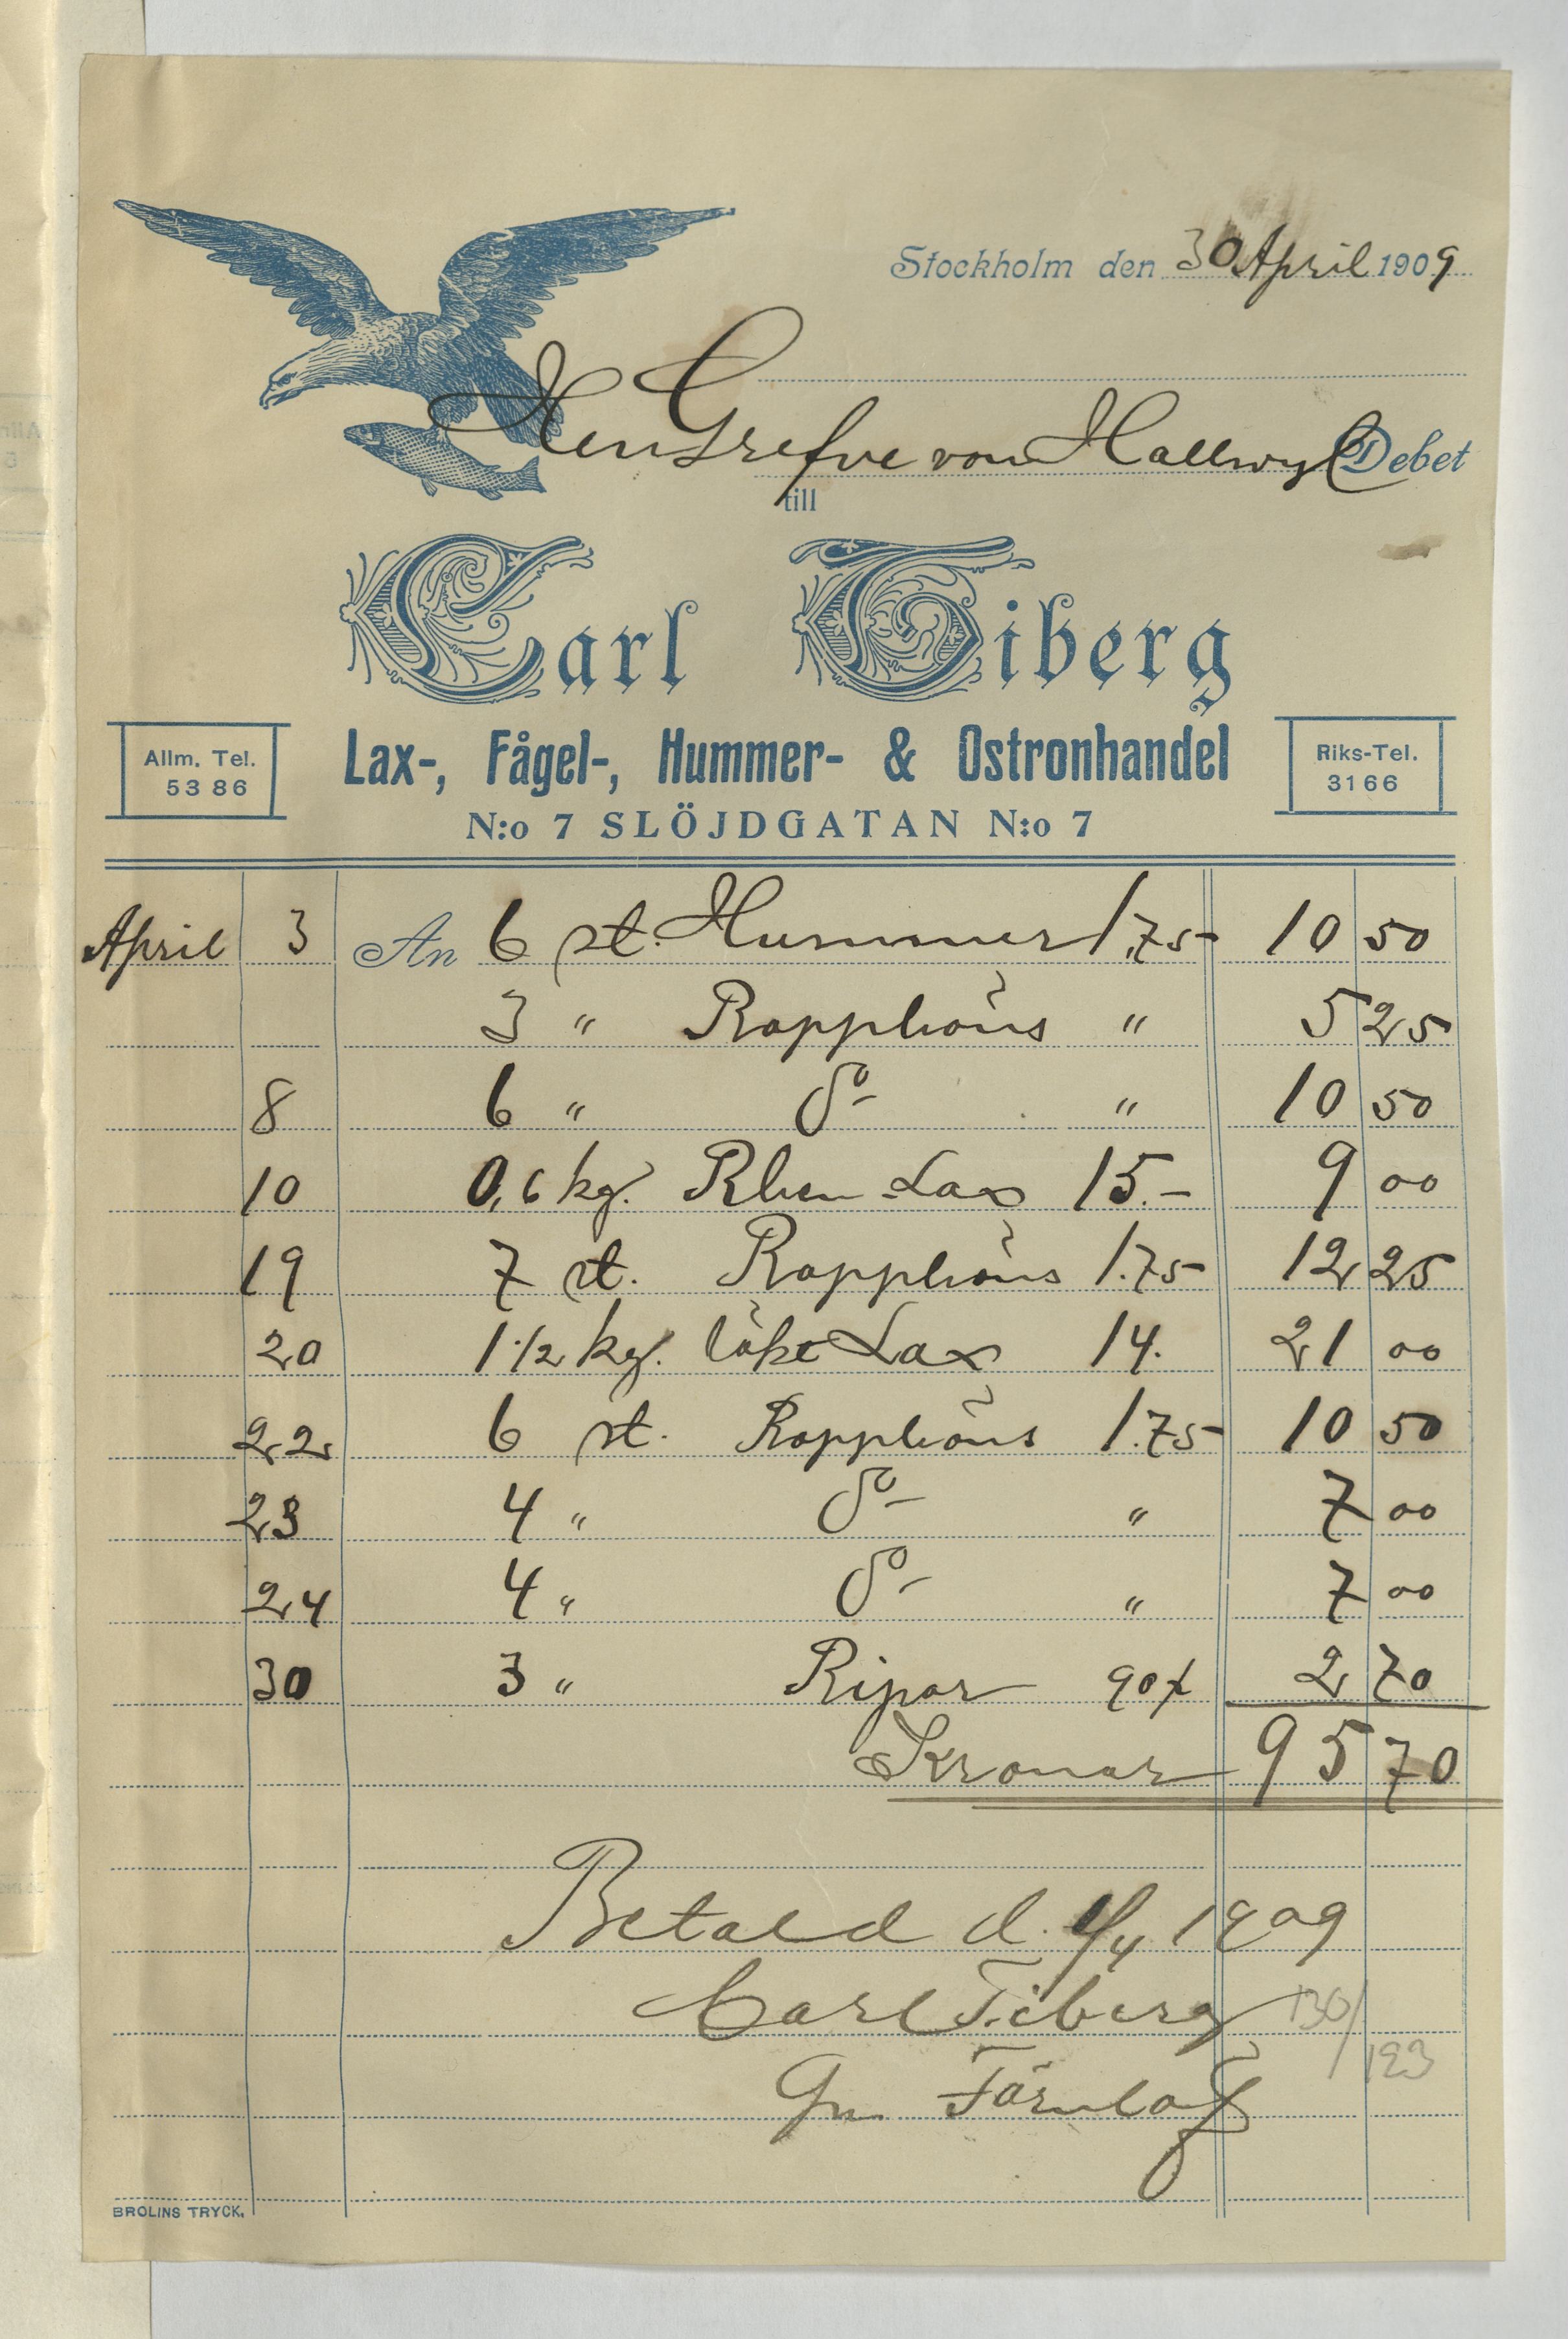 Stockholm den 30 April 1909
Herr Grefve von Hallwyl Debet
till
Carl Tiberg
Lax-, Fågel-, Hummer- & Ostronhandel
Allm. Tel.
5386
Riks-Tel.
3166
N:o 7 SLÖJDGATAN N:o 7
April 3 An 6 st. Hummer 1,75 10 50
3 " Rapphöns " 5 25
8 6 " do " 10 50
10 0,6 kg. Rhen Lax 15.- 9 00
19 7 st. Rapphöns 1.75 12 25
20 1 1/2 kg. lökt Lax 14. 21 00
22 6 st. Rapphöns 1.75 10 50
23 4 " do " 7 00
24 4 " do " 7 00
30 3 " Ripor 90 2 70
Kronor 95 70
Betald d. /4 1909
Carl Tiberg
130/
123
Gm
BROLINS TRYCK.